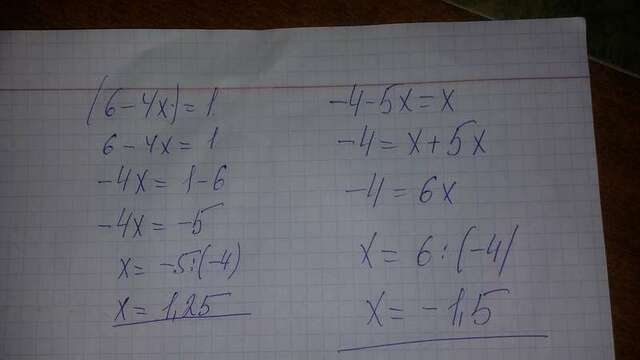 (6-4x)=1
6-4x=1
-4x=1-6
-4x=-5
x=-5:(-4)
x=1,25
-4-5x=x
-4=x+5x
-4=6x
x=6:(-4)
x=-1,5